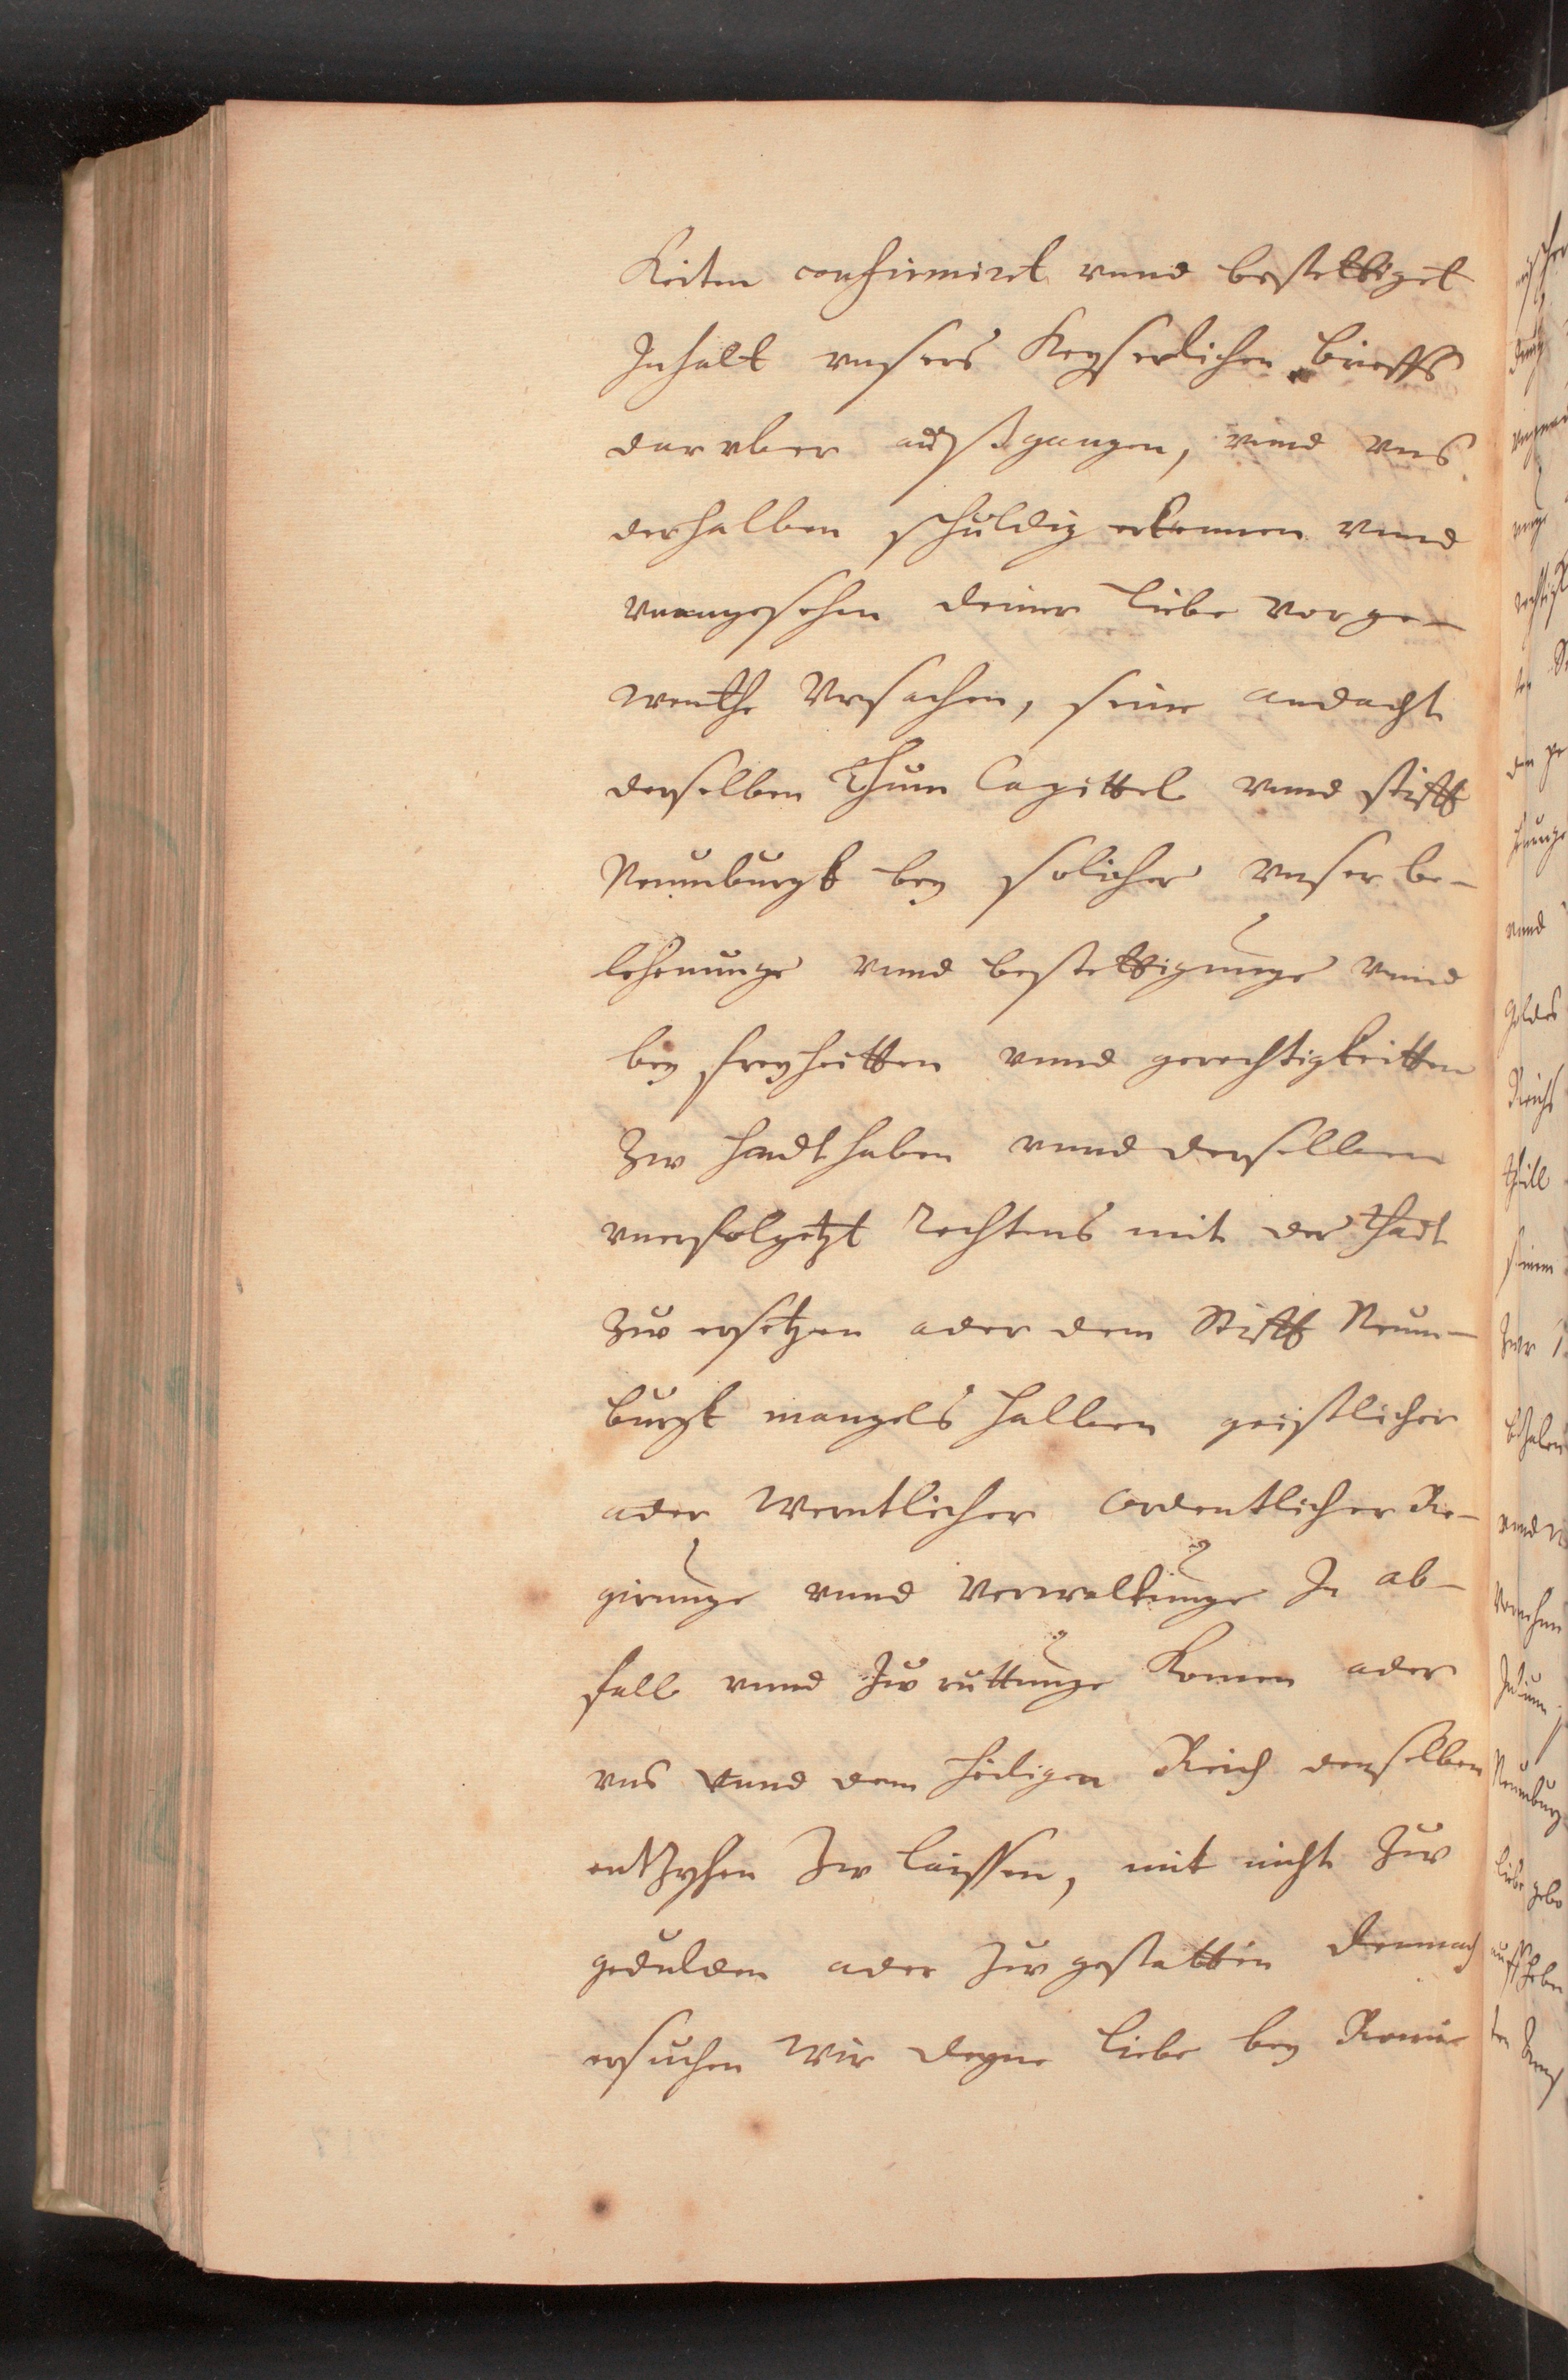 Keiten confirmiret vnnd bestettiget
Inhalt vnsers Keyserlichen brieffs
daruber außgangen, vnnd vns
derhalben schuldig erkennen vnnd
vnangesehen deiner liebe vorge-
wenthe Vrsachen, seine andacht
derselben Thum Capittel vnnd stifft
Neumburgk bey solicher vnser be-
lehenunge vnnd bestettigunge vnnd
bey freyheitten vnnd gerechtigkeitten
Zw handthaben vnnd derselben
vnerfolgetzt Rechtens mit der thadt
Zuw ersetzen ader dem Stifft Neum-
burgk mangels halben geistlicher
ader werntlicher Ordentlicher Re-
girunge vnnd verwaltunge In ab-
fall vnnd Zuruttunge komen ader
vns vnnd dem heiligen Reich denselben
entzyhen Zw laissen, mit nicht Zuw
gedulden ader Zuw gestatten Demnach
ersuchen wir deyne liebe bey Romi-